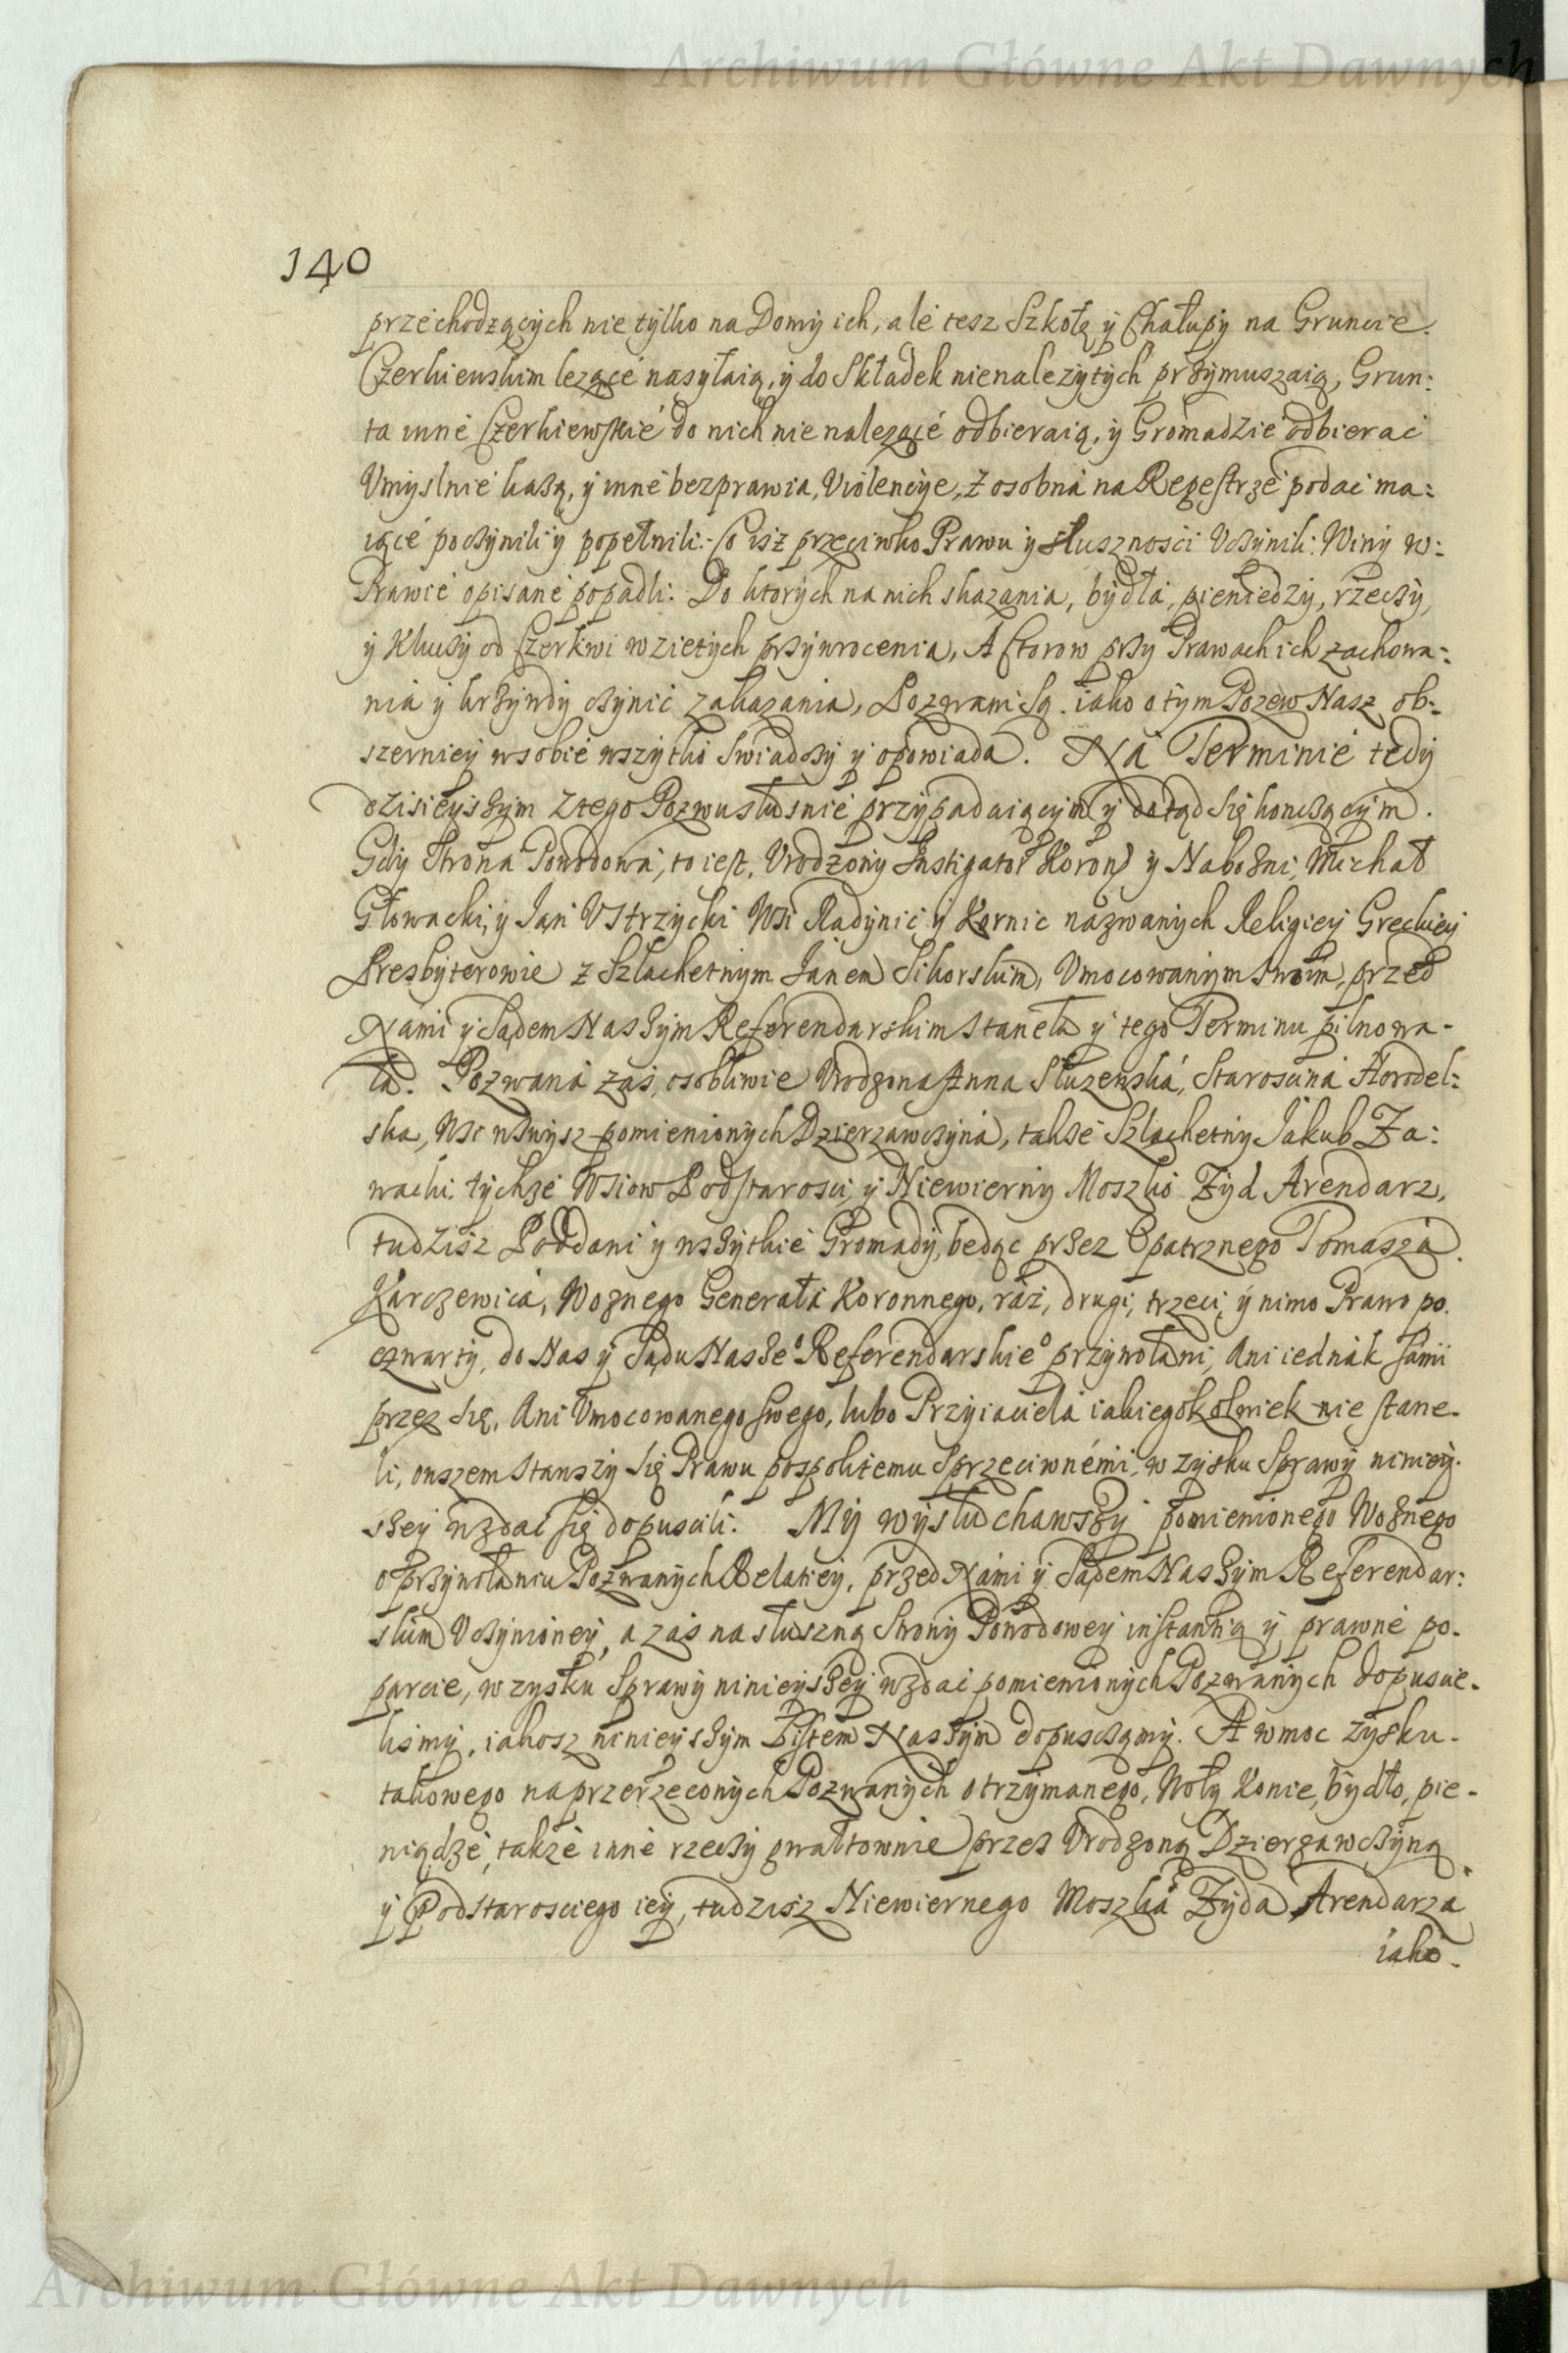 Archiwum Główne Akt Dawnych
140
przechodzących nie tylko na Domy ich, ale tesz Szkołę y Chałupy na Gruncie
Czerkiewskim lezące nasyłaią, y do Składek nienalezytych przymuszaią, Grun:
ta inne Czerkiewskie do nich nie nalezące odbieraią, y Gromadzie odbierac
Umyslnie kazą, y inne bezprawia, Violencye, z osobna na Regestrze podac ma:
iące poczynili y popełnili. Co isz przeciwko Prawu y słusznosci Uczynili. Winy w:
Prawie opisane popadli. Do ktorych na nich skazania, bydła, pieniedzy, rzeczy,
y Kluczy od Czerkwi wzietych przywrocenia, Actorow przy Prawach ich zachowa:
nia y krzywdy czynic zakazania, Pozwani są. iako o tym Pozew Nasz ob:
szerniey w sobie wszytko swiadczy y opowiada. Na Terminie tedy
dzisieyszym z tego Pozwu słusnie przypadaiącym y dotąd się konczącym.
Gdy Strona Powodowa, to iest, Vrodzony Instigator Koron y Nabozni, Michał
Głowacki, y Jan Vstrzycki Wsi Radynic y Kornic nazwanych Religiey Greckiey
Presbyterowie z Szlachetnym Janem Sikorskim, Umocowanym swoim, przed
Nami y Sądem Naszym Referendarskim staneła y tego Terminu pilnowa-
ła. Pozwana zas, osobliwie Vrodzona Anna Służewska, Staroscina Horodel:
ska, Wsi wzwysz pomienionych Dzierzawczyna, takze Szlachetny Jakub Za:
wacki, tychze Wsiow Podstarosci, y Niewierny Moszko Zyd Arendarz,
tudzisz Poddani y wszytkie Gromady, bedąc przez Opatrznego Tomasza
Karczewica, Woznego Generała Koronnego, raz, drugi, trzeci, y nimo Prawo po
czwarty, do Nas y Sądu Nasze⁰ Referendarskie⁰ przywołani, Ani iednak sami
przez się, Ani Umocowanego swego, lubo Przyiaciela iakiegokolwiek nie stane-
li, owszem stawszy się Prawu pospolitemu sprzeciwnemi, w zysku Sprawy niniey-
szey wzdac się dopuscili. My wysłuchawszy pomienionego Woznego
o przywołaniu Pozwanych Relatiey, przed Nami y Sądem Naszym Referendar:
skim Uczynioney, a zas na słuszną Strony Powodowey instantią y prawne po-
parcie, w zysku Sprawy ninieyszey wzdac pomienionych Pozwanych dopuscie-
lismy, iakosz ninieyszym Listem Naszym dopusczamy. A w moc zysku-
takowego na przerzeconych Pozwanych otrzymanego, Woły, Konie, bydło, pie-
niądze, także inne rzeczy gwałtownie przes Vrodzoną Dzierzawczyną
y Podstarosciego iey, tudzisz Niewiernego Moszka Zyda Arendarza
iako.
Archiwum Główne Akt Dawnych